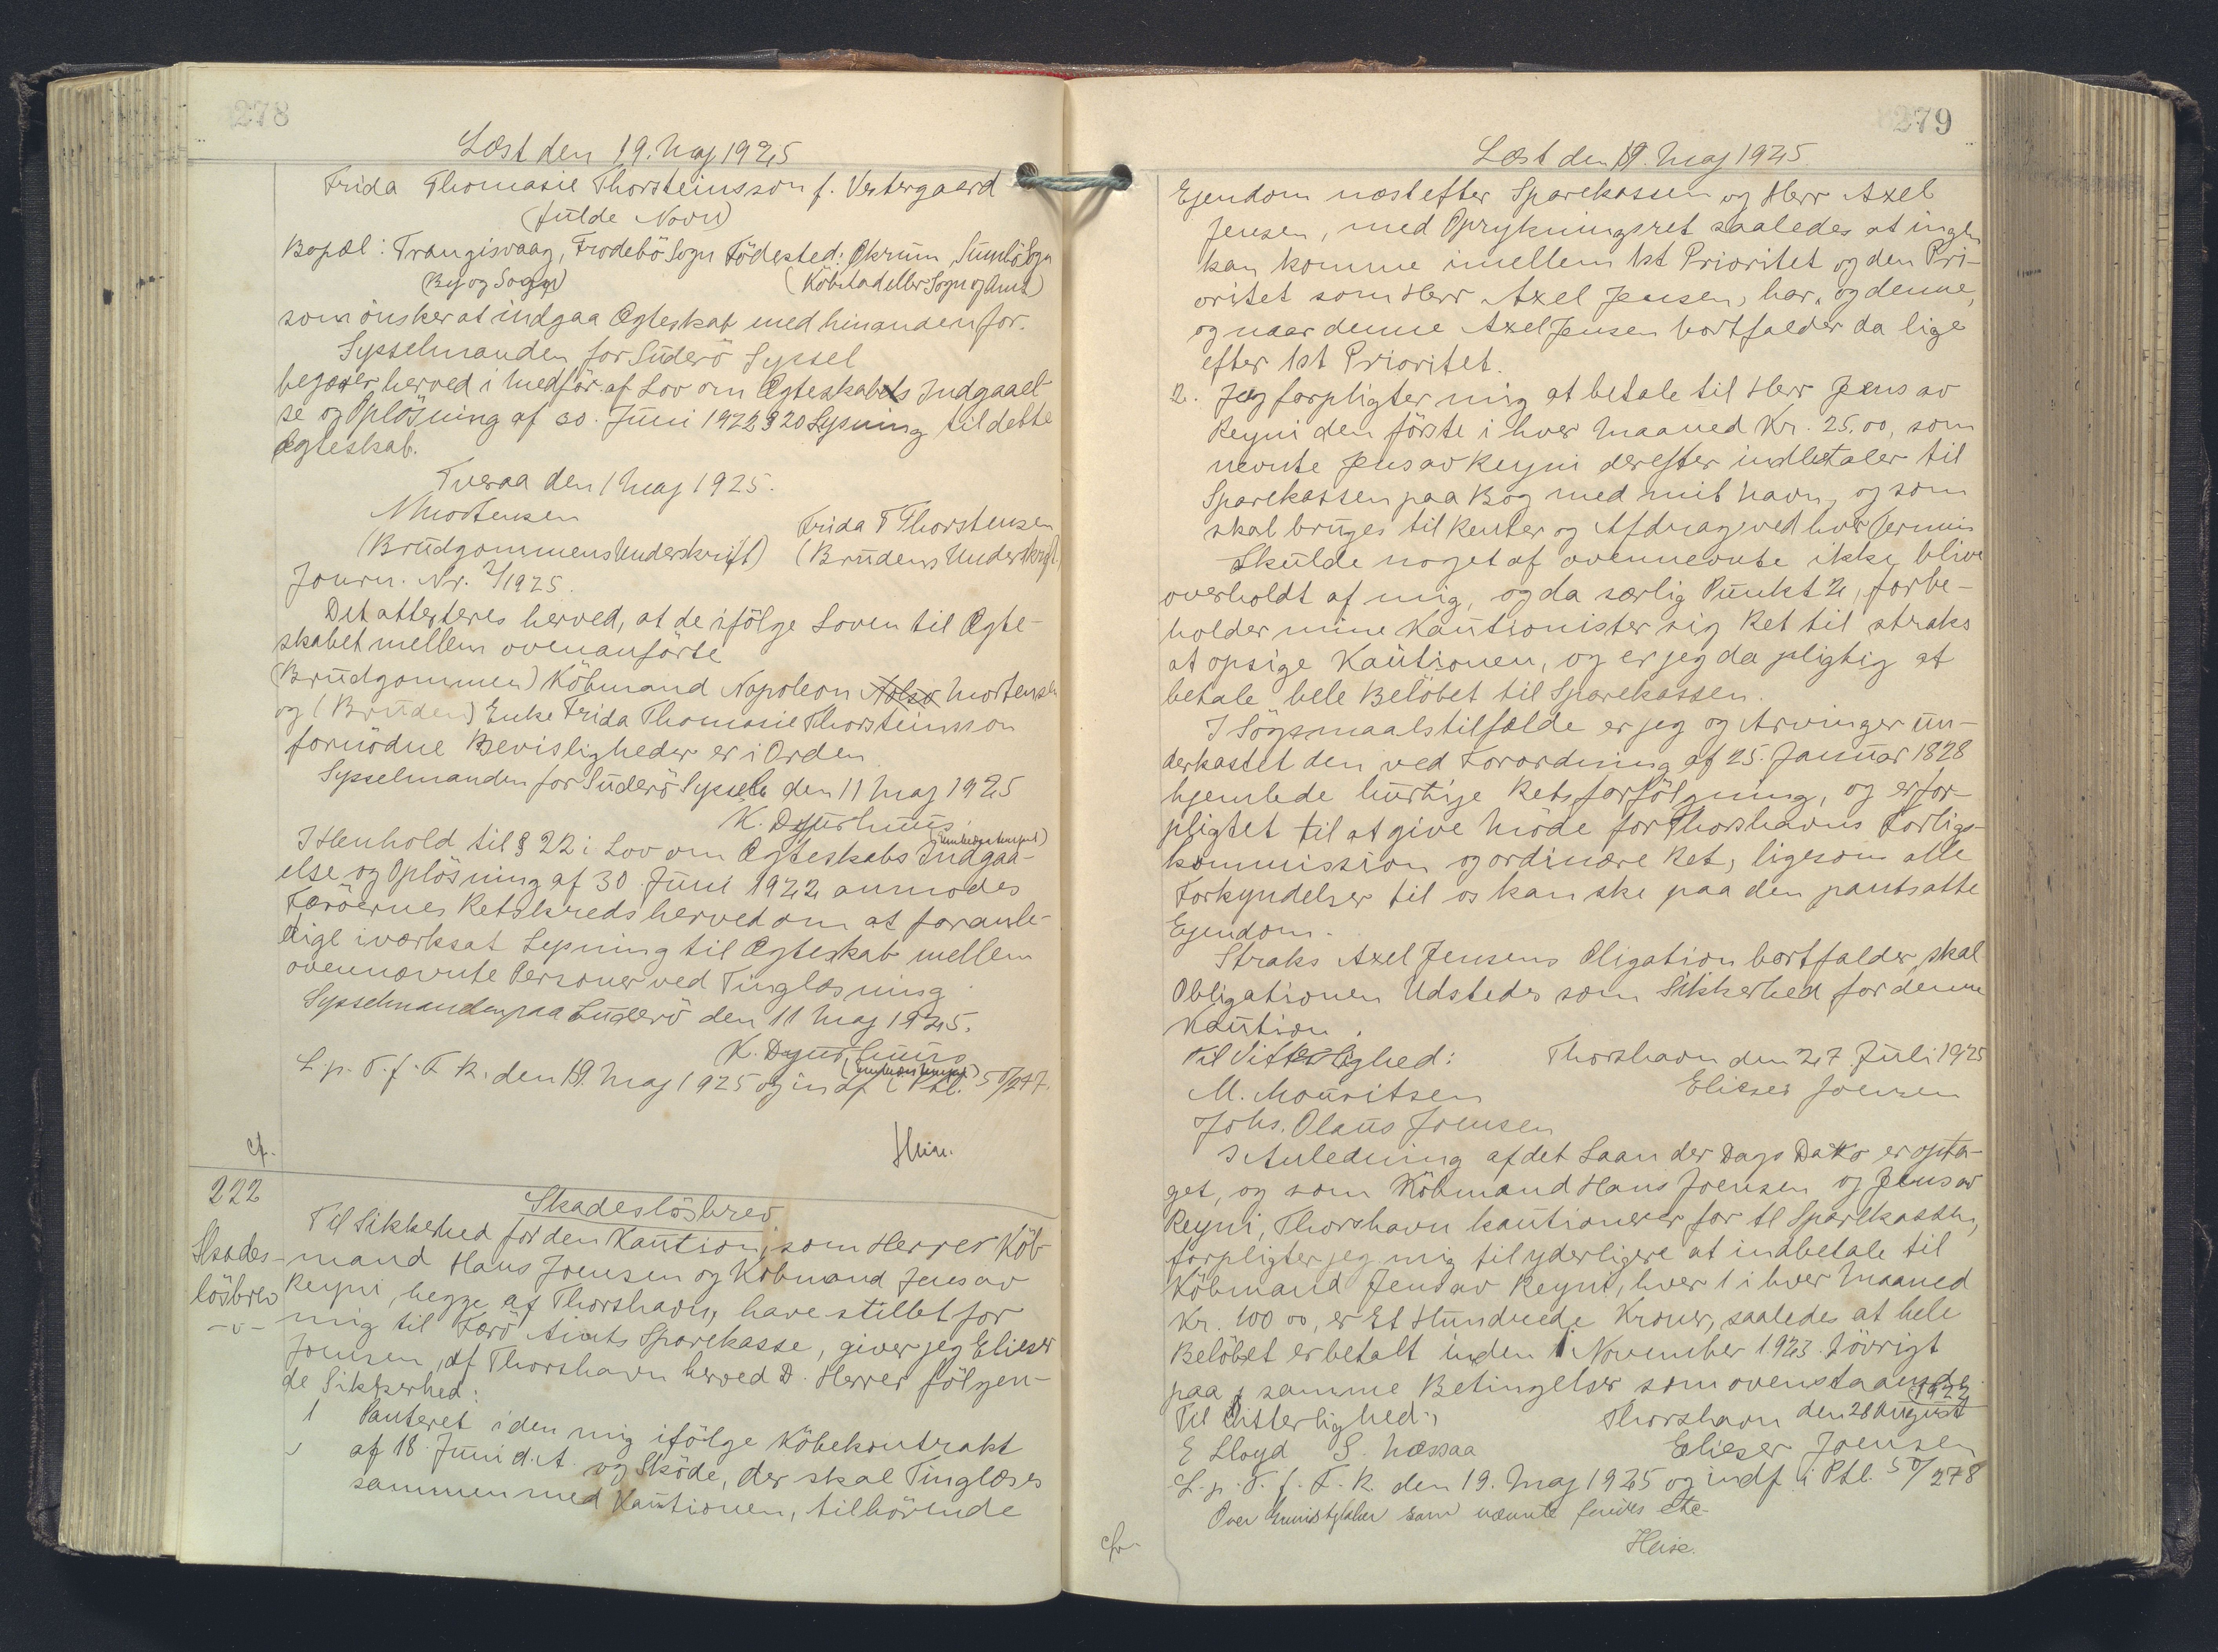 278
Læst den 19. Maj 1925
Frida Thomasie Thorsteinsson f. Vestergaard
(fulde Navn)
Bopæl: Trangisvaag, Frodebö Sogn Födested: Økrum, Sumbö Sogn
(By og Sogn) (Köbstad eller Sogn og Amt)
som önsker at indgaa Ægteskab med hinanden for.
Sysselmanden for Suderö Syssel
begærer herved i Medför af Lov om Ægteskabets Indgaael-
se og Oplösning af 30. Juni 1922 § 20 Lysning til dette
Ægteskab.
Tveraa den 1 Maj 1925.
N Mortensen Frida T Thorstensen
(Brudgommens Underskrift) (Brudens Underskrift)
Journ. Nr. 2/1925.
Det attesteres herved, at de ifölge Loven til Ægte-
skabet mellem ovenanförte
(Brudgommen) Köbmand Napoleon Mortensen
og (Bruden) Enke Frida Thomasie Thorsteinsson
fornödne Bevisligheder er i Orden.
Sysselmanden for Suderö Syssel den 11 Maj 1925
K. Djurhuus.
I Henhold til § 22 i Lov om Ægteskabs Indgaa-
else og Oplösning af 30 Juni 1922 anmodes
Færöernes Retskreds herved om at foranle-
dige iværksat Lysning til Ægteskab mellem
ovennævnte Personer ved Tinglæsning.
Sysselmanden paa Suderö den 11 Maj 1925.
K. Djurhuus
L. p. T. f. F. R. den 19. Maj 1925 og indf i Ptl. 50/247.
Heise.
cf.
222
Skadeslösbrev
Skades-
lösbrev
-v-
Til Sikkerhed for den Kaution, som Herrer Köb-
mand Hans Joensen og Köbmand Jens av
Reyni, begge af Thorshavn, have stillet for
mig til Færö Amts Sparekasse, giver jeg Elieser
Joensen, af Thorshavn herved D. Herrer fölgen-
de Sikkerhed:
1 Panteret i den mig ifölge Köbekontrakt
af 18. Juni d. A. og Sköde, der skal Tinglæses
sammen med Kautionen, tilhörende
279
Læst den 19. Maj 1925.
Ejendom næstefter Sparekassen og Herr Axel
Jensen, med Oprykningsret saaledes at ingen
kan komme imellem 1st Prioritet og den Pri-
oritet som Herr Axel Jensen, har, og denne,
og naar denne Axel Jensen bortfalder da lige
efter 1st Prioritet.
2. Jeg forpligter mig at betale til Herr Jens av
Reyni den förste i hver Maaned Kr. 25.00, som
nevnte Jens av Reyni derefter indbetaler til
Sparekassen paa Bog med mit Navn, og som
skal bruges til Renter og Afdrag ved hver Termin
Skulde noget af ovennevnte ikke blive
overholdt af mig, og da særlig Punkt 2, forbe-
holder mine Kautionister sig Ret til straks
at opsige Kautionen, og er jeg da pligtig at
betale hele Belöbet til Sparekassen.
I Sögsmaalstilfælde er jeg og Arvinger un-
derkastet den ved Forordning af 25. Januar 1828
hjemlede hurtige Retsforfölgning, og er for-
pligtet til at give Möde for Thorshavns Forligs-
kommission og ordinære Ret, ligesom alle
Forkyndelser til os kan ske paa den pantsatte
Ejendom.
Straks Axel Jensens Oligation bortfalder, skal
Obligationen Udstedes som Sikkerhed for denne
Kaution.
Til Vitterlighed: Thorshavn den 27. Juli 1925
M. Mouritsen Elieser Joensen
Johs. Olaus Joensen
I Anledning af det Laan der Dags Dato er opta-
get, og som Köbmand Hans Joensen og Jens av
Reyni, Thorshavn kautionerer for til Sparekassen,
forpligter jeg mig til yderligere at indbetale til
Köbmand Jens av Reyni, hver 1 i hver Maaned
Kr. 100 00, er Et Hundrede Kroner, saaledes at hele
Belöbet er betalt inden 1 November 1923. Iövrigt
paa samme Betingelser som ovenstaaende.
1922
Til Vitterlighed: Thorshavn den 28 August
E Lloyd S. Næssaa Elieser Joensen
L. p. T. f. F. R. den 19. Maj 1925 og indf. i Ptl. 50/278
Over som nævnte findes etc.
Heise.
cfr.